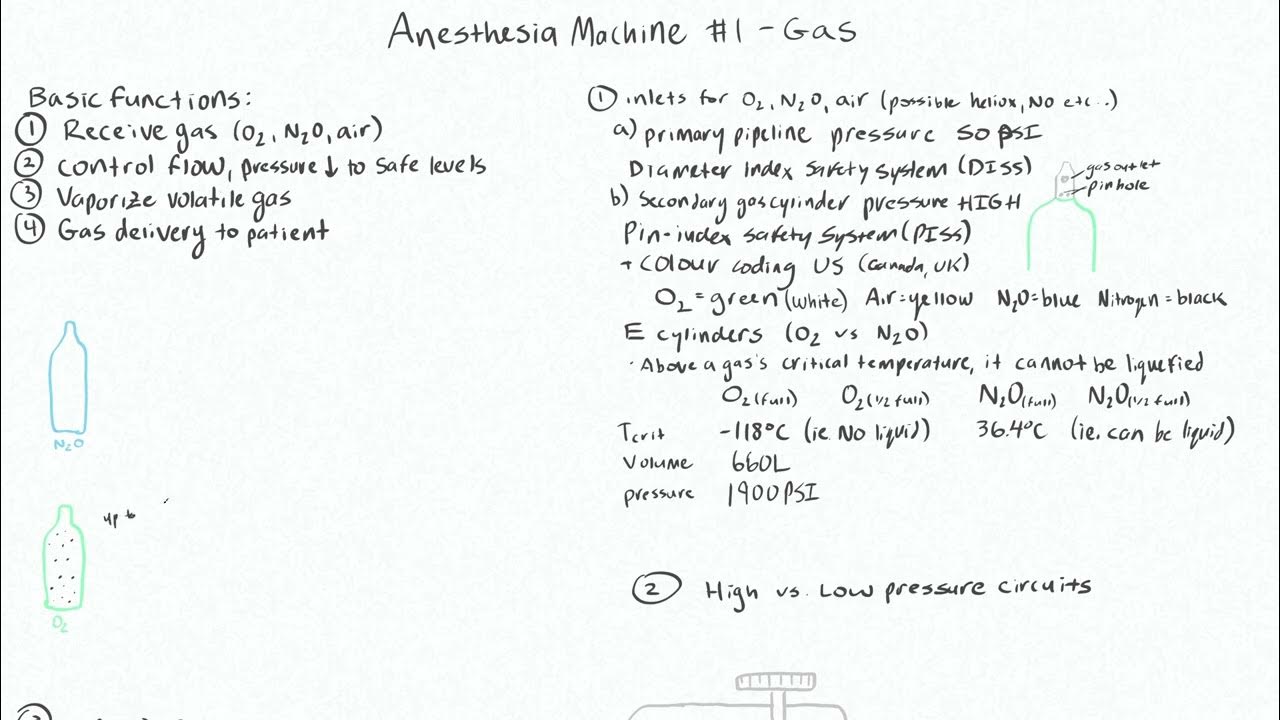 Anesthesia Machine #1 - Gas
Basic functions:
① Receive gas (O₂, N₂O, air)
② control flow, pressure ↓ to safe levels
③ Vaporize volatile gas
④ Gas delivery to patient
N₂O
up to
O₂
① inlets for O₂, N₂O, air (possible heliox, NO etc..)
a) primary pipeline pressure 50 PSI
Diameter Index Safety System (DISS)
gas outlet
pin hole
b) Secondary gas cylinder pressure HIGH
Pin-index safety system (PISS)
+ colour coding US (Canada, UK)
O₂ = green (white) Air = yellow N₂O = blue Nitrogen = black
E cylinders (O₂ vs N₂O)
· Above a gas's critical temperature, it cannot be liquefied
O₂ (full) O₂ (1/2 full) N₂O (full) N₂O (1/2 full)
Tcrit -118°C (ie. No liquid) 36.4°C (ie. can be liquid)
Volume 660L
pressure 1900 PSI
② High vs. Low pressure circuits